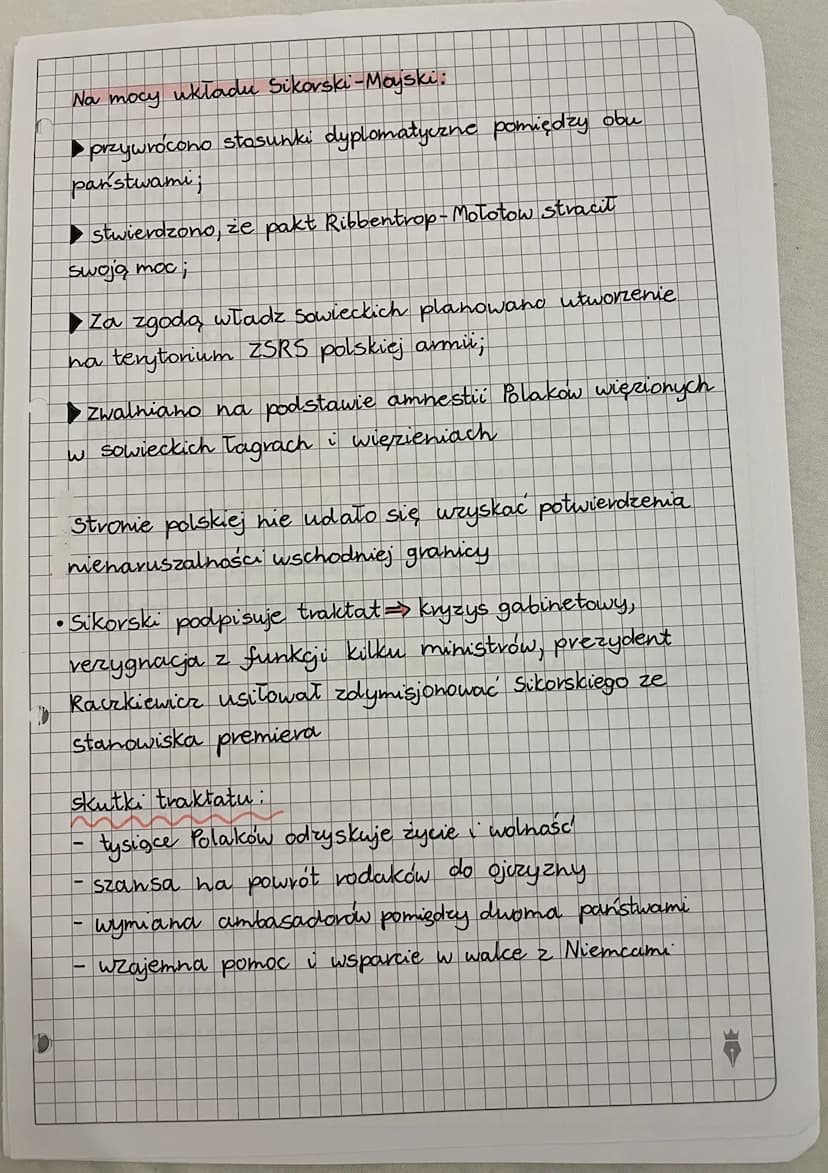 Na mocy układu Sikorski-Majski:
▶ przywrócono stosunki dyplomatyczne pomiędzy obu
państwami;
▶ stwierdzono, że pakt Ribbentrop-Mołotow stracił
swoją moc;
▶ Za zgodą władz sowieckich planowano utworzenie
na terytorium ZSRS polskiej armii;
▶ zwalniano na podstawie amnestii Polaków więzionych
w sowieckich łagrach i więzieniach
Stronie polskiej nie udało się uzyskać potwierdzenia
nienaruszalności wschodniej granicy
• Sikorski podpisuje traktat ⇒ kryzys gabinetowy,
rezygnacja z funkcji kilku ministrów, prezydent
Raczkiewicz usiłował zdymisjonować Sikorskiego ze
stanowiska premiera
skutki traktatu:
- tysiące Polaków odzyskuje życie i wolność
- szansa na powrót rodaków do ojczyzny
- wymiana ambasadorów pomiędzy dwoma państwami
- wzajemna pomoc i wsparcie w walce z Niemcami